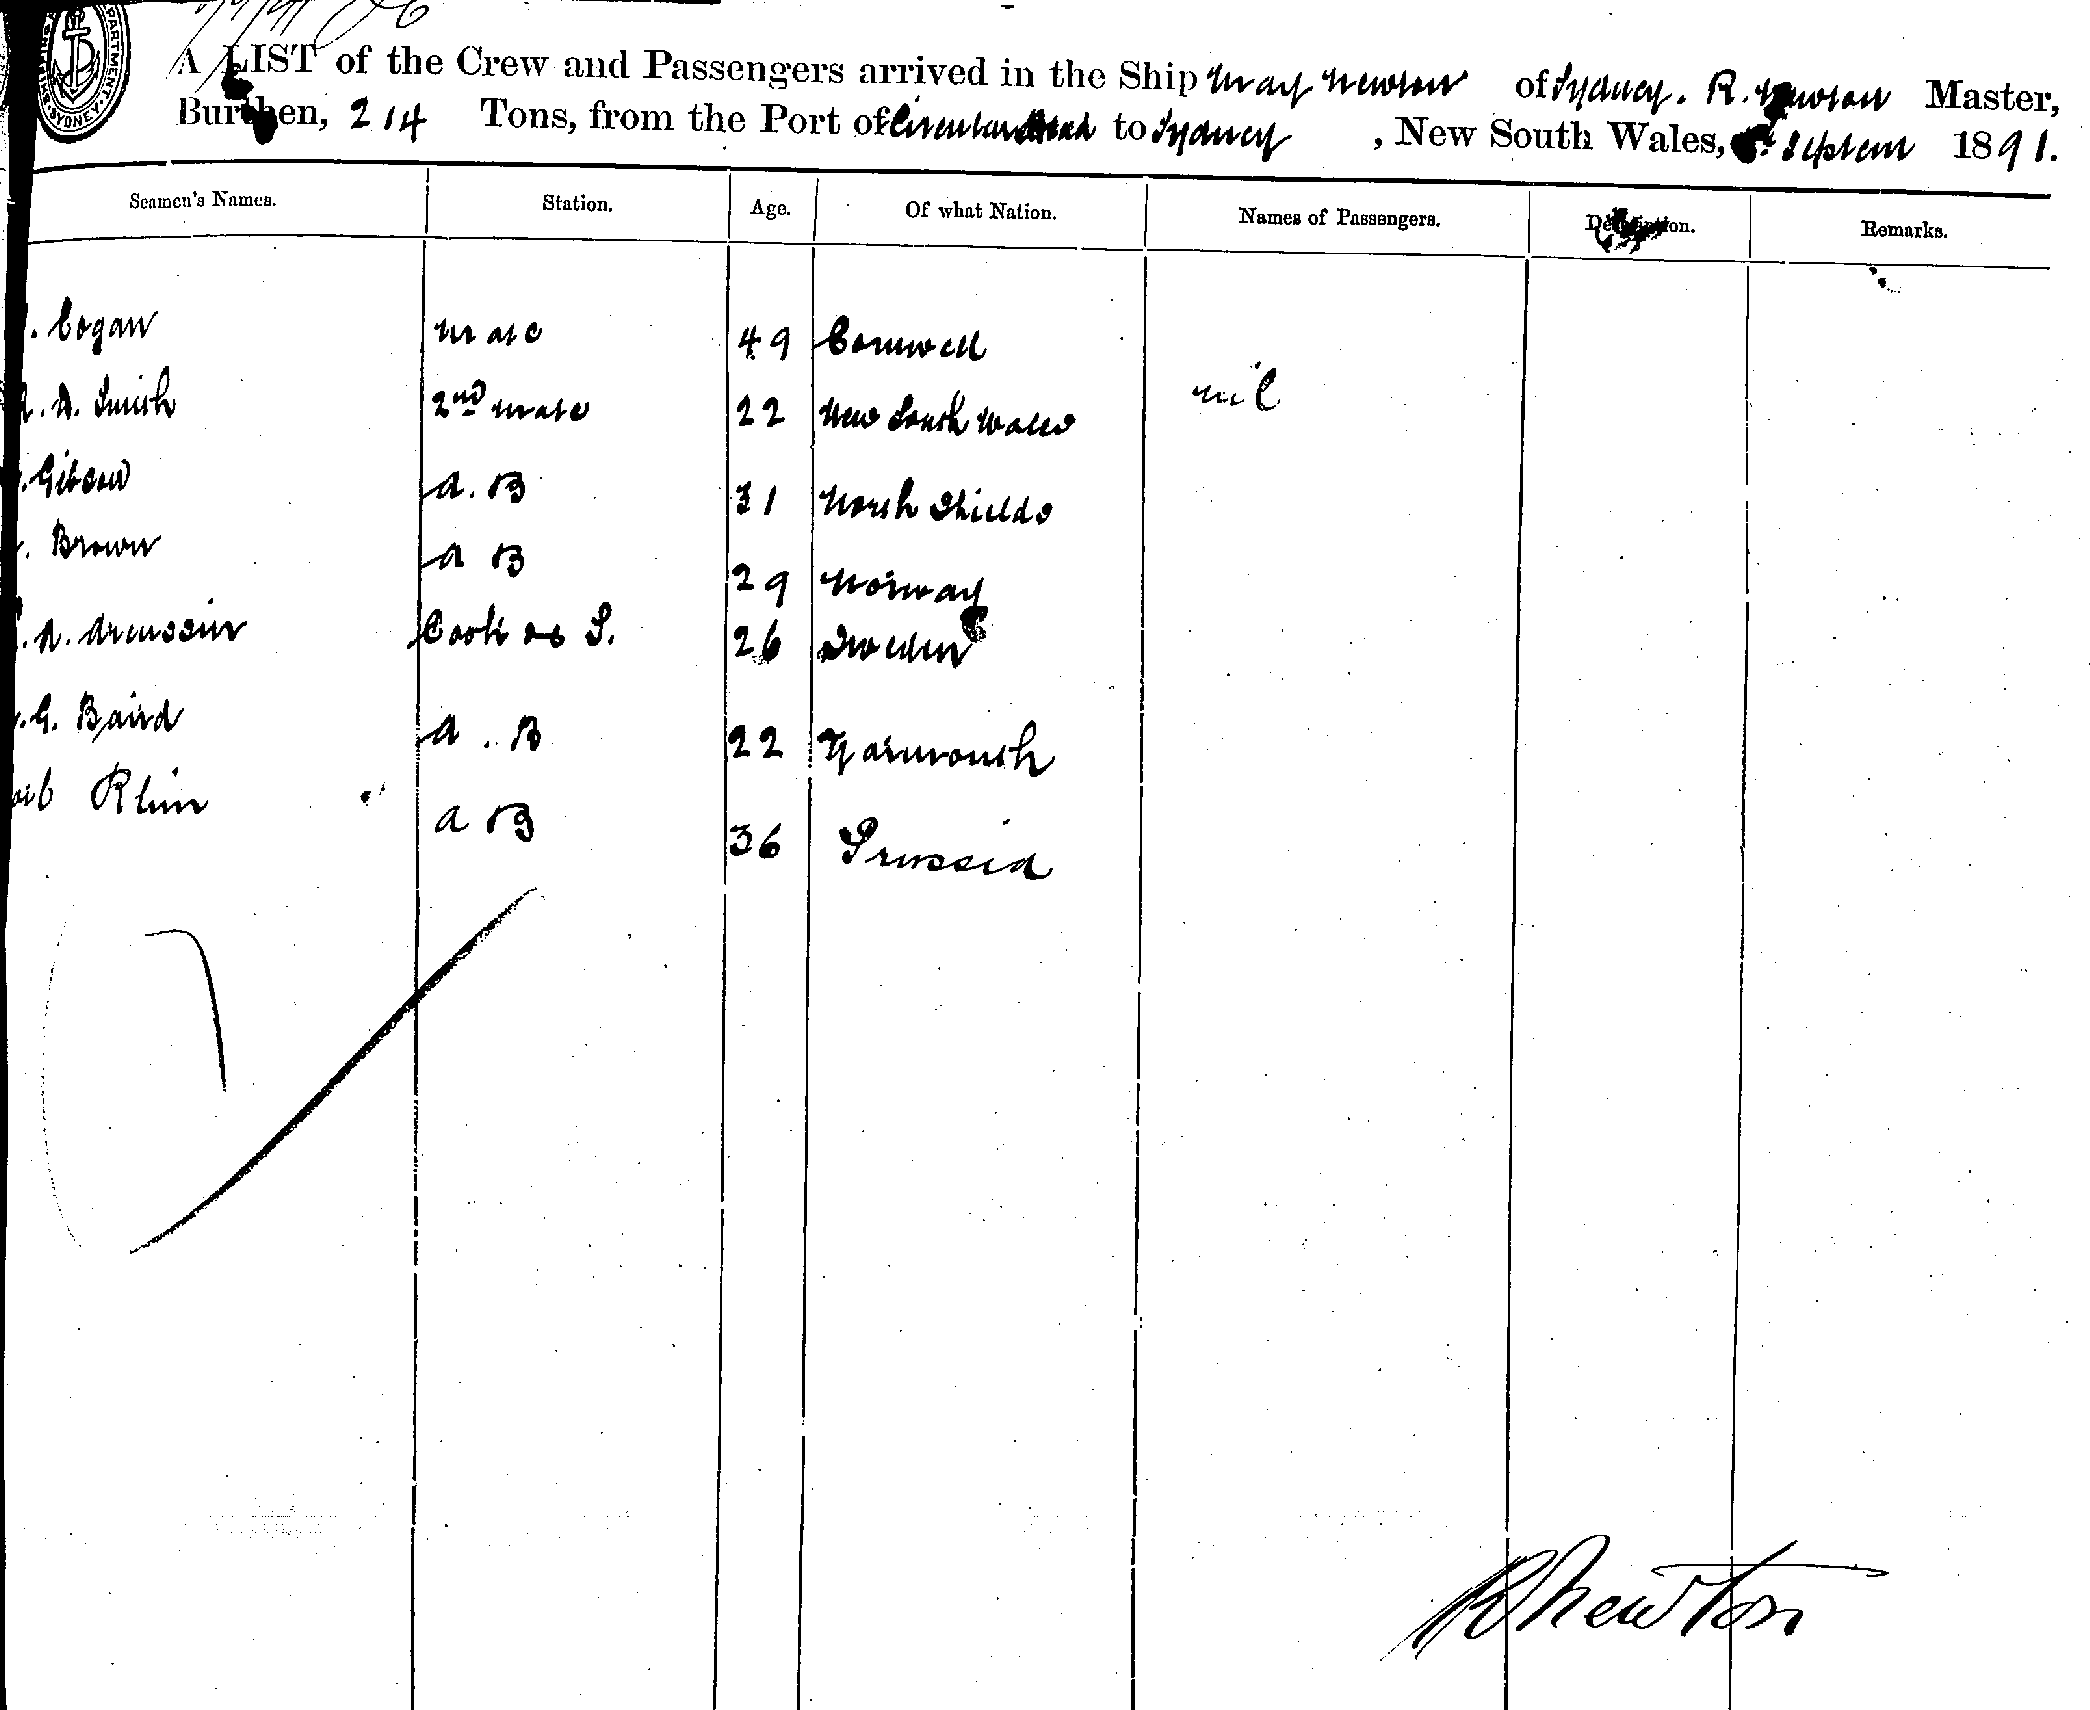 A LIST of the Crew and Passengers arrived in the Ship May Newton of Sydney. R. Newton Master,
Burthen, 214 Tons, from the Port of Circular Head to Sydney, New South Wales, Septem 1891.
Seamen's Names. Station. Age. Of what Nation. Names of Passengers. Description. Remarks.
. Cogan mate 49 Cornwell
. A. Smith 2nd mate 22 New South Wales nil
. Gibson A. B 31 North Shields
. Brown A B 29 Norway
. A. Cook as S. 26 Sweden
. G. Baird A. B 22 Yarmouth
Rhin A B 36 Prussia
7
R Newton